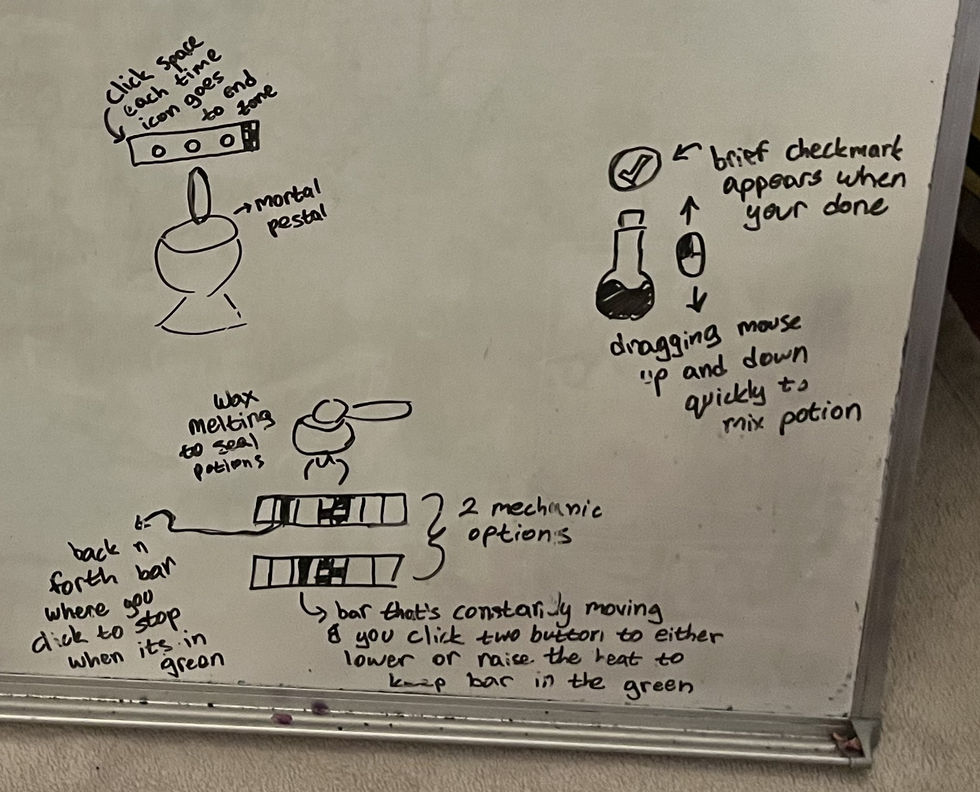 click space
each time
icon goes
to end
zone
mortal
pestal
brief checkmark
appears when
your done
dragging mouse
up and down
quickly to
mix potion
wax
melting
to seal
potions
2 mechanic
options
back n
forth bar
where you
click to stop
when its in
green
bar that's constantly moving
& you click two button to either
lower or raise the heat to
keep bar in the green